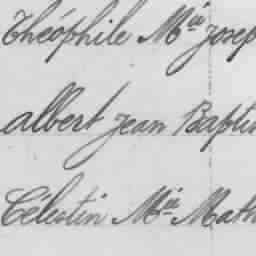 Théophile Mie Josep
albert Jean Baptis
Célestin Mie Math